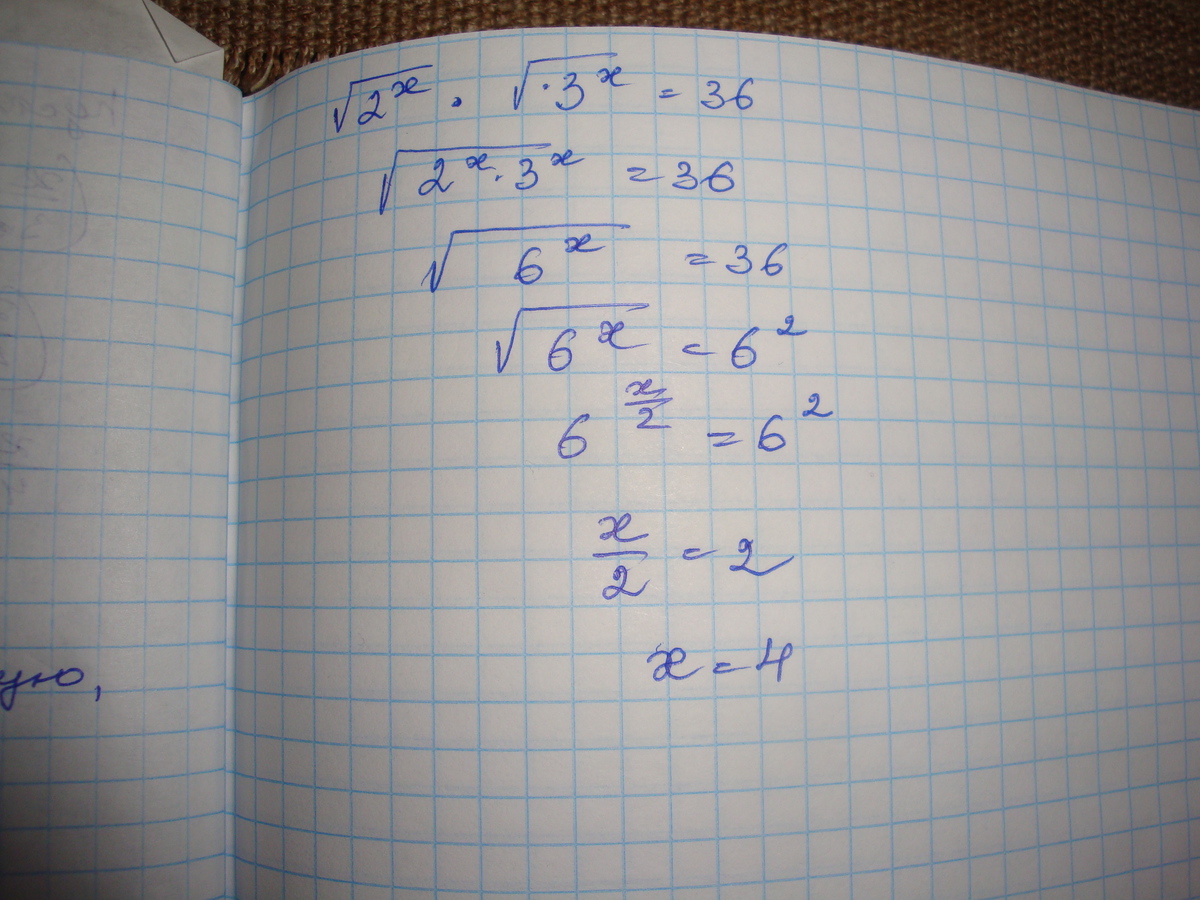 √2ˣ · √·3ˣ = 36
√2ˣ·3ˣ = 36
√6ˣ = 36
√6ˣ = 6²
6^(x/2) = 6²
x/2 = 2
x = 4
ую,